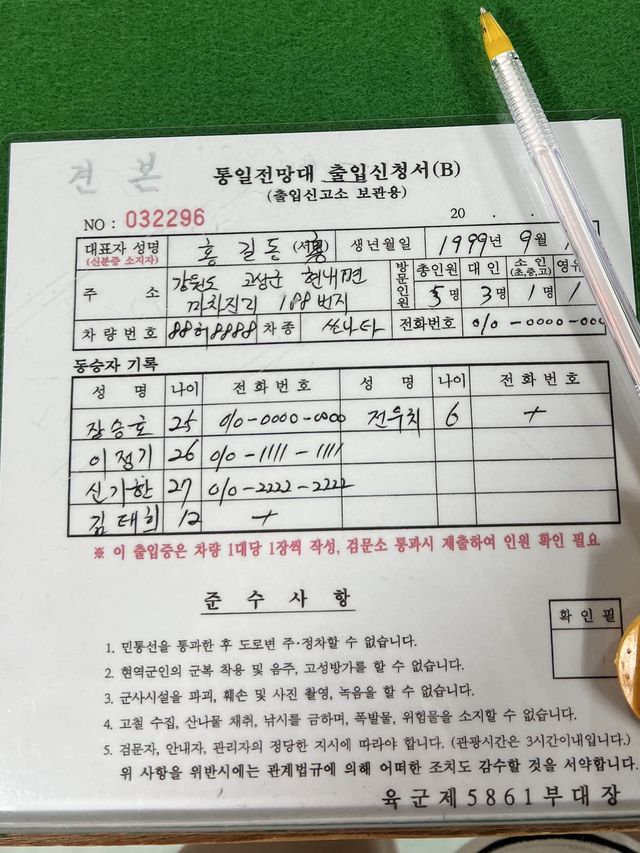 견 본
통일전망대 출입신청서(B)
(출입신고소 보관용)
NO : 032296
20 . .
대표자 성명 홍 길 동 생년월일 1999년 9월
(신분증 소지자)
주 소 강원도 고성군 현내면 마차진리 188번지
방문인원 총인원 5명 대인 3명 소인 (초,중,고) 1명 영유 1
차량번호 88허8888 차종 쏘나타 전화번호 010-0000-000
동승자 기록
성 명 나이 전 화 번 호 성 명 나이 전 화 번 호
장승호 25 010-0000-0000 전우치 6
이정기 26 010-1111-1111
신기한 27 010-2222-2222
김태희 12
※ 이 출입증은 차량 1대당 1장씩 작성, 검문소 통과시 제출하여 인원 확인 필요
준 수 사 항
확 인 필
1. 민통선을 통과한 후 도로변 주·정차할 수 없습니다.
2. 현역군인의 군복 착용 및 음주, 고성방가를 할 수 없습니다.
3. 군사시설을 파괴, 훼손 및 사진 촬영, 녹음을 할 수 없습니다.
4. 고철 수집, 산나물 채취, 낚시를 금하며, 폭발물, 위험물을 소지할 수 없습니다.
5. 검문자, 안내자, 관리자의 정당한 지시에 따라야 합니다. (관광시간은 3시간이내입니다.)
위 사항을 위반시에는 관계법규에 의해 어떠한 조치도 감수할 것을 서약합니다.
육군제5861부대장